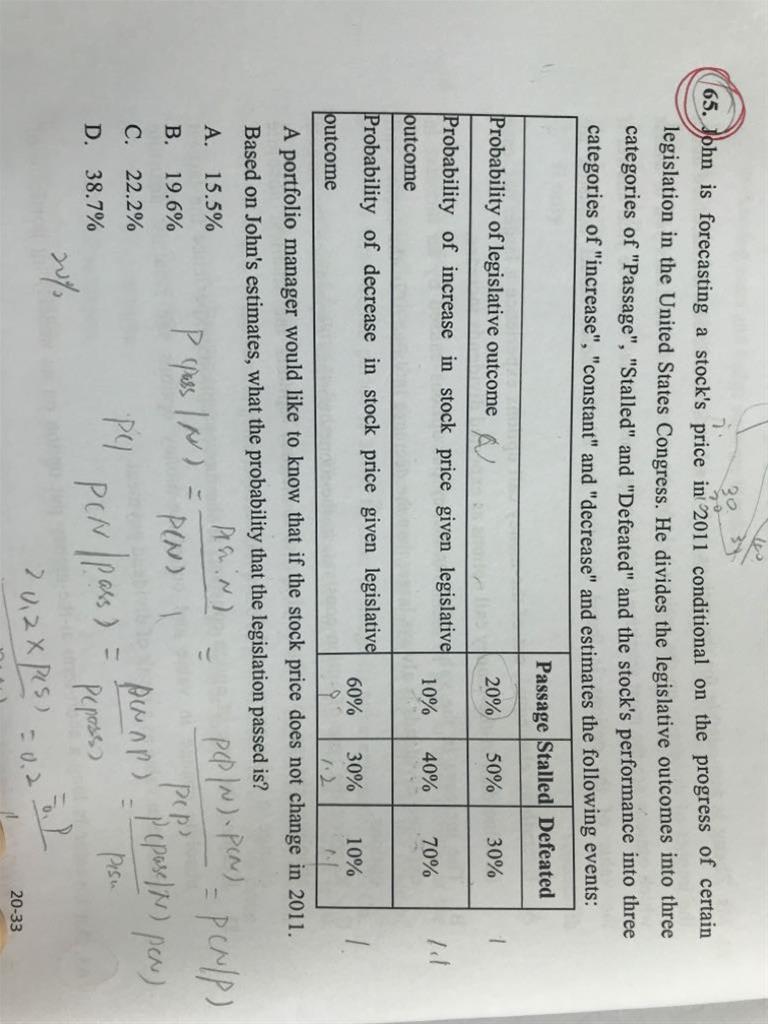 65. John is forecasting a stock's price in 2011 conditional on the progress of certain
legislation in the United States Congress. He divides the legislative outcomes into three
categories of "Passage", "Stalled" and "Defeated" and the stock's performance into three
categories of "increase", "constant" and "decrease" and estimates the following events:
Passage Stalled Defeated
Probability of legislative outcome 20% 50% 30% 1
Probability of increase in stock price given legislative 10% 40% 70% 1.1
outcome
Probability of decrease in stock price given legislative 60% 30% 10% 1.
outcome
A portfolio manager would like to know that if the stock price does not change in 2011.
Based on John's estimates, what the probability that the legislation passed is?
A. 15.5%
B. 19.6%
C. 22.2%
D. 38.7%
P(pass|N) =
P(N)
= P(P|N)·P(N) = P(N|P)
P(P)
P(N|pass) = P(N∩P) = P(pass|N) P(N)
P(pass)
20%
0.2×P(S) = 0.2
20-33